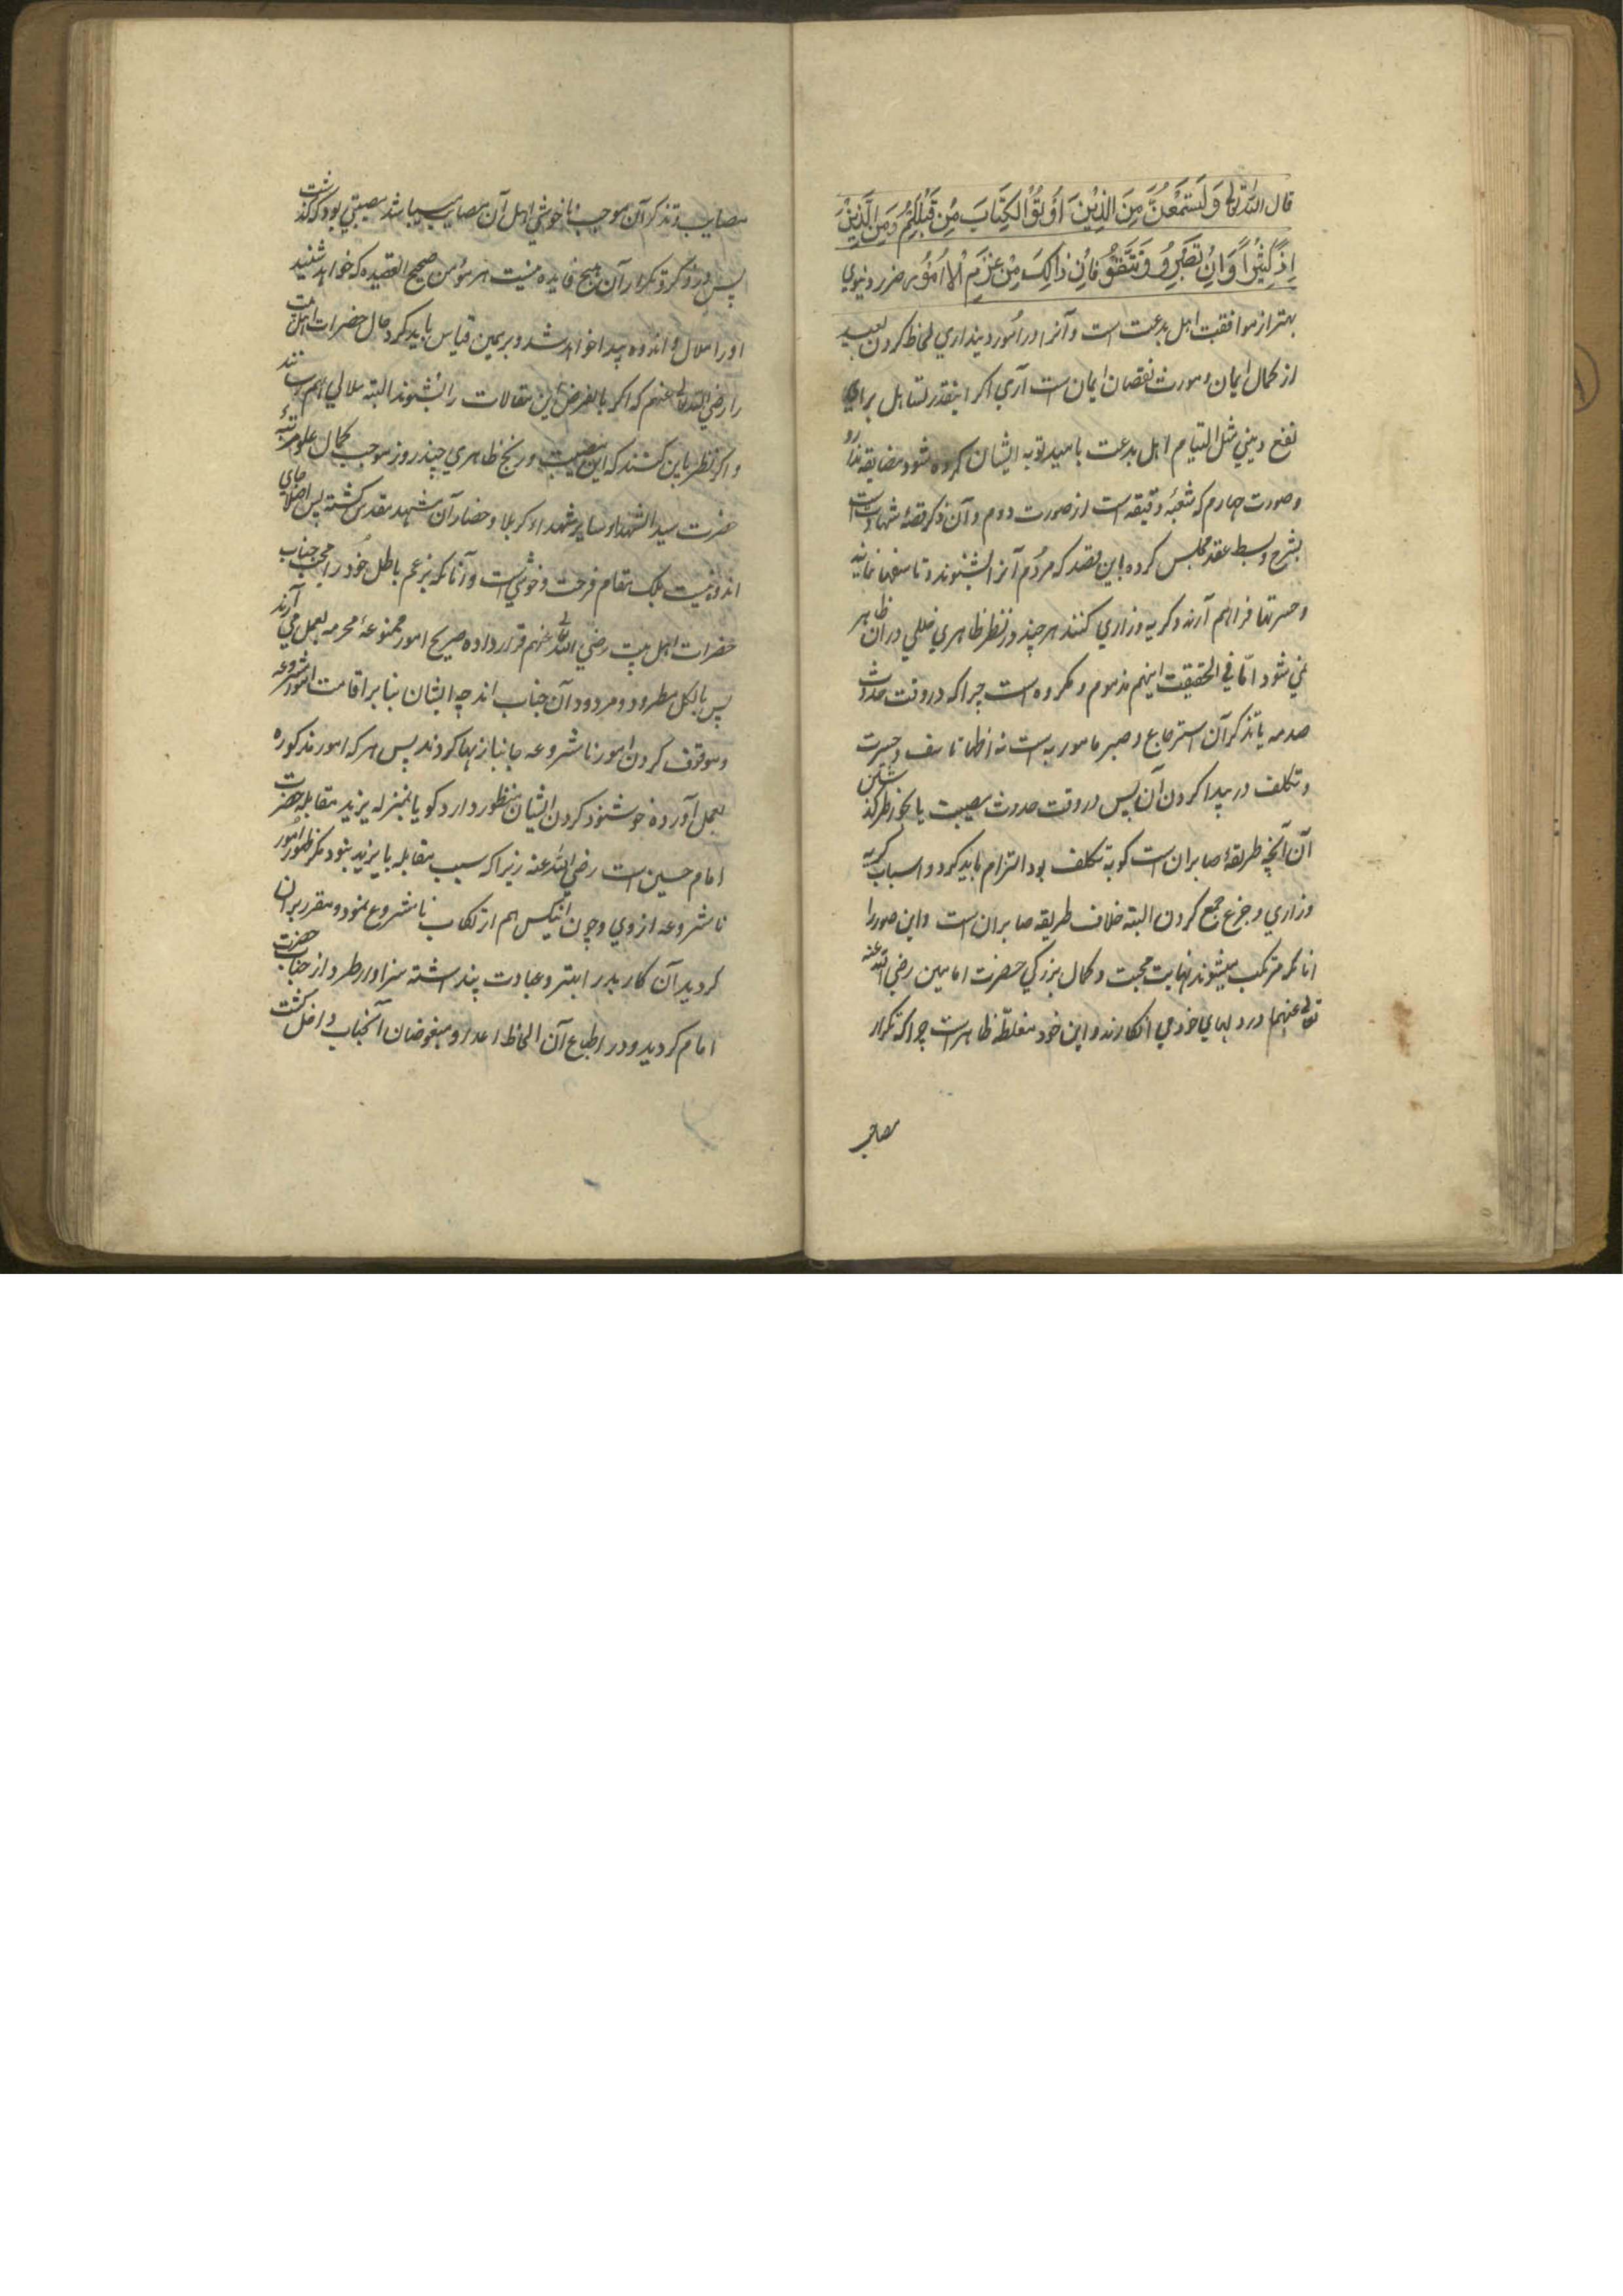 قال الله تعالی وَلَتَسْمَعُنَّ مِنَ الَّذِیْنَ اُوْتُوْ الْکِتَابَ مِنْ قَبْلِکُمْ وَمِنَ الَّذِیْنَ
کَثِیْراً وَاِنْ تَصْبِرُو وَتَتَّقُوْ فَاِنَّ ذَالِکَ مِنْ عَزْمِ الْاُمُوْر ضرر دنیوي
بهتر از موافقت اهل بدعت است و آنرا در امور دینداري لحاظ کردن بعید
از کمال ایمان و مورث نقصان ایمان است آري اکر اینقدر تساهل براي
نفع دیني مثل التیام اهل بدعت بامید توبه ایشان کرده شود مضایقه ندارد
و صورت چهارم که شعبهٔ دقیقه است از صورت دوم و آن ذکر قصهٔ شهادت است
بشرح و بسط عقد مجلس کرده باین قصد که مردم آنرا بشنوند و تاسفها نمایند
و حسرتها فراهم آرند و کریه و زاري کنند هر چند در نظر ظاهري خللي در آن ظاهر
نمي شود امّا في الحقیقت اینهم مذموم و مکروه است چرا که در وقت حدوث
صدمه یا تذکر آن استرجاع و صبر مامور به است نه اظهار تاسف و حسرت
و تکلف در پیدا کردن آن پس در وقت حدوث مصیبت یا بخاطر گذشتن
آن آنچه طریقهٔ صابران است کو به تکلف بود التزام باید کرد و اسباب کریه
و زاري و جزع جمع کردن البته خلاف طریقه صابران است و این صور را
آنانکه مرتکب میشوند نهایت محبت و کمال بزرکي حضرت امامین رضي الله
تعالی عنهما در دلهاي خود مي انکارند و این خود مغلطّه ظاهر است چرا که تکرار
مصایب
مصایب و تذکر آن موجب ناخوشي اهل آن مصایب میباشد مصیبتي بود که کذشت
پس در ذکر و تکرار آن هیچ فایده نیست هر مؤمن صحیح العقیده که خواهد شنید
او را ملال و اندوه پیدا خواهد شد و بریمین قیاس باید کرد حال حضرات اهل بیت
را رضي الله تعالی عنهم که اکر بالفرض این مقالات را بشنوند البته ملالي بهم رسانند
و اکر نظر باین کنند که این مصیبت و رنج ظاهري چند روز موجب کمال علو مرتبهٔ
حضرت سید الشهداء و سایر شهداء کربلا و حضار آن مشهد مقدس کشته پس اصلا جاي
اندوه نیست بلکه مقام فرحت و خوشي است و آنانکه بزعم باطل خود را محب جناب
حضرات اهل بیت رضي الله تعالی عنهم قرار داده صریح امور ممنوعهٔ محرمه بعمل مي آرند
پس بالکل مطرود و مردود آن جناب اند چه ایشان بنا بر اقامت امور مشروعه
و موقوف کردن امور نامشروعه جانبازیها کردند پس هر که امور مذکوره
بعمل آورده خوشنود کردن ایشان منظور دارد کویا بمنزله یزید بمقابله حضرت
امام حسین است رضي الله عنه زیرا که سبب مقابله با یزید نبود مکر ظهور امور
نامشروعه از وي و چون اینکس هم ارتکاب نامشروع نمود و مقرر بر آن
کردید آن کار بدرا بهتر و عبادت پنداشته سزاوار طرد از جناب حضرت
امام کردید و در اطباع آن الحاظ اعداء و مبغوضان آنجناب داخل کشت